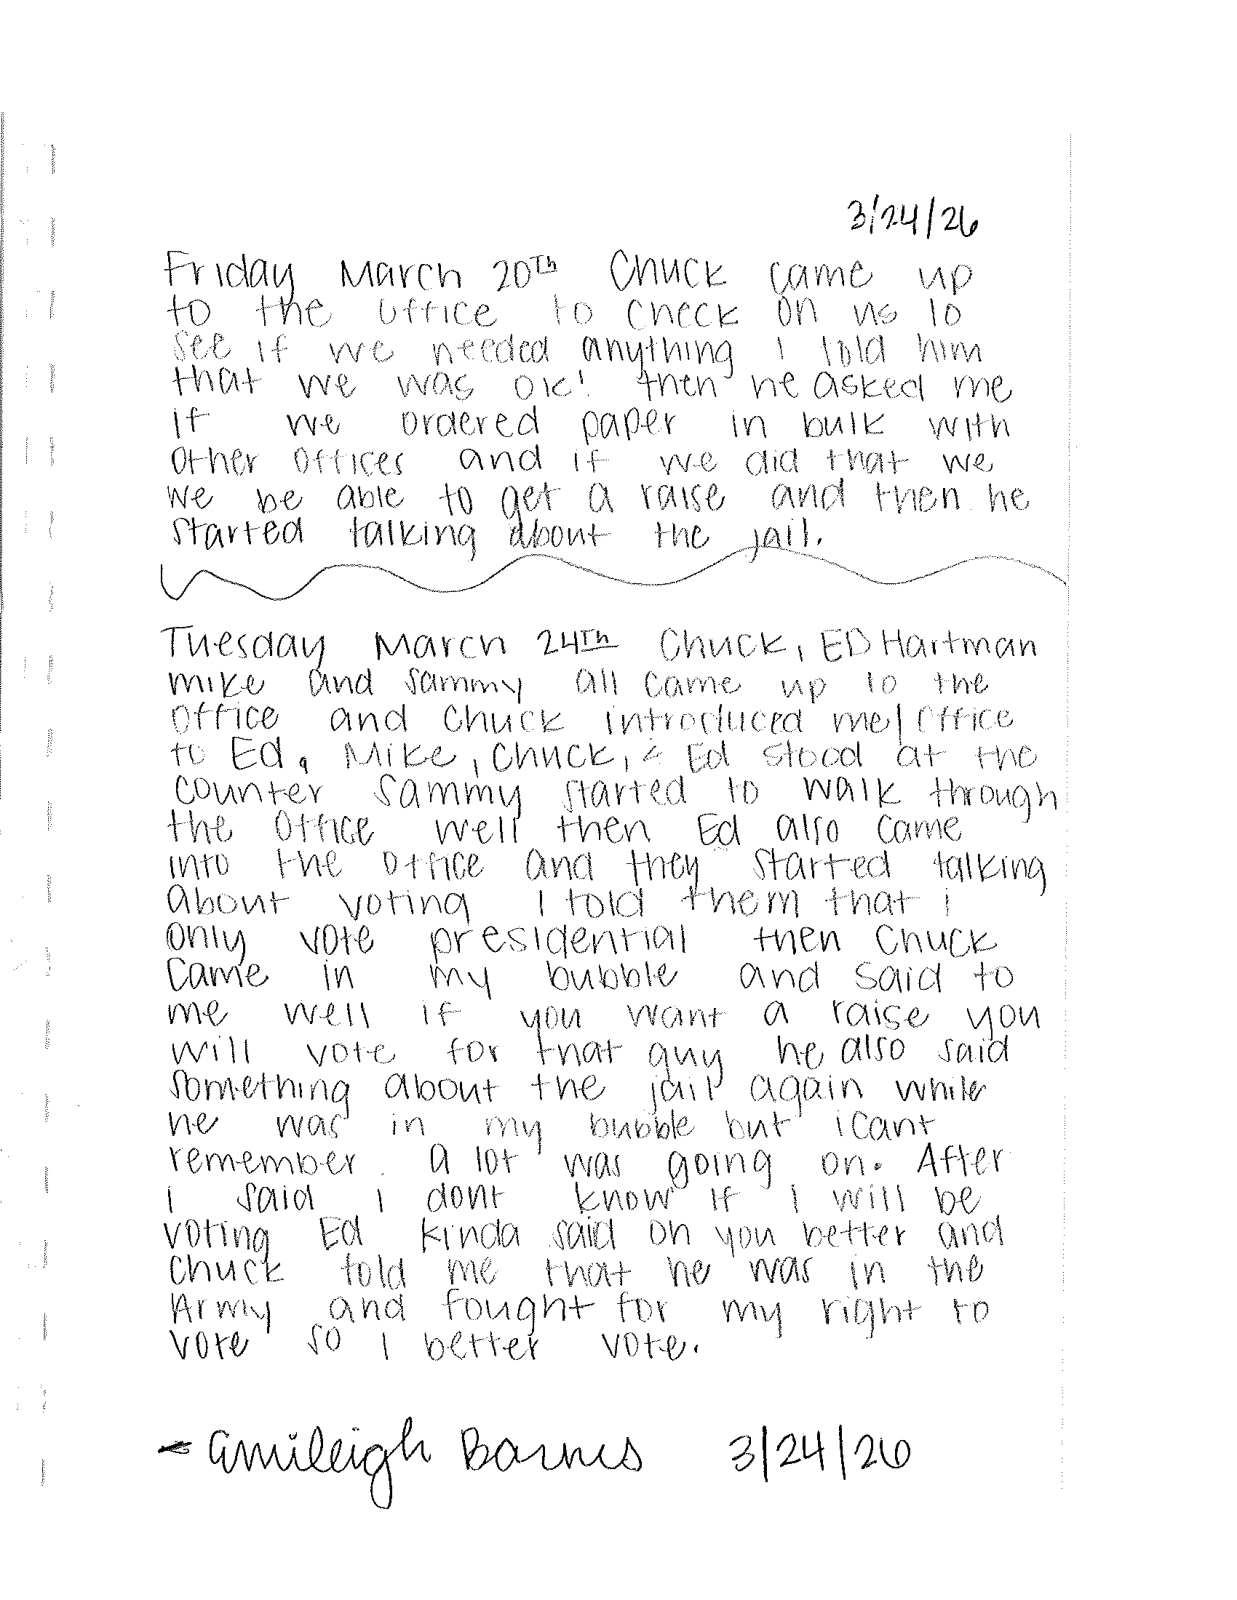 3/24/26
Friday March 20Th Chuck came up
to the office to check on us to
see if we needed anything I told him
that we was ok! then he asked me
if we ordered paper in bulk with
other offices and if we did that we
we be able to get a raise and then he
started talking about the jail.
Tuesday March 24Th Chuck, ED Hartman
mike and sammy all came up to the
office and Chuck introduced me/office
to Ed, Mike, Chuck, & Ed stood at the
counter Sammy started to walk through
the office well then Ed also came
into the office and they started talking
about voting I told them that i
only vote presidential then Chuck
came in my bubble and said to
me well if you want a raise you
will vote for that guy he also said
something about the jail again while
he was in my bubble but i cant
remember. a lot was going on. After
I said I dont know if I will be
voting Ed kinda said oh you better and
Chuck told me that he was in the
Army and fought for my right to
vote so I better vote.
Amileigh Barnes 3/24/26